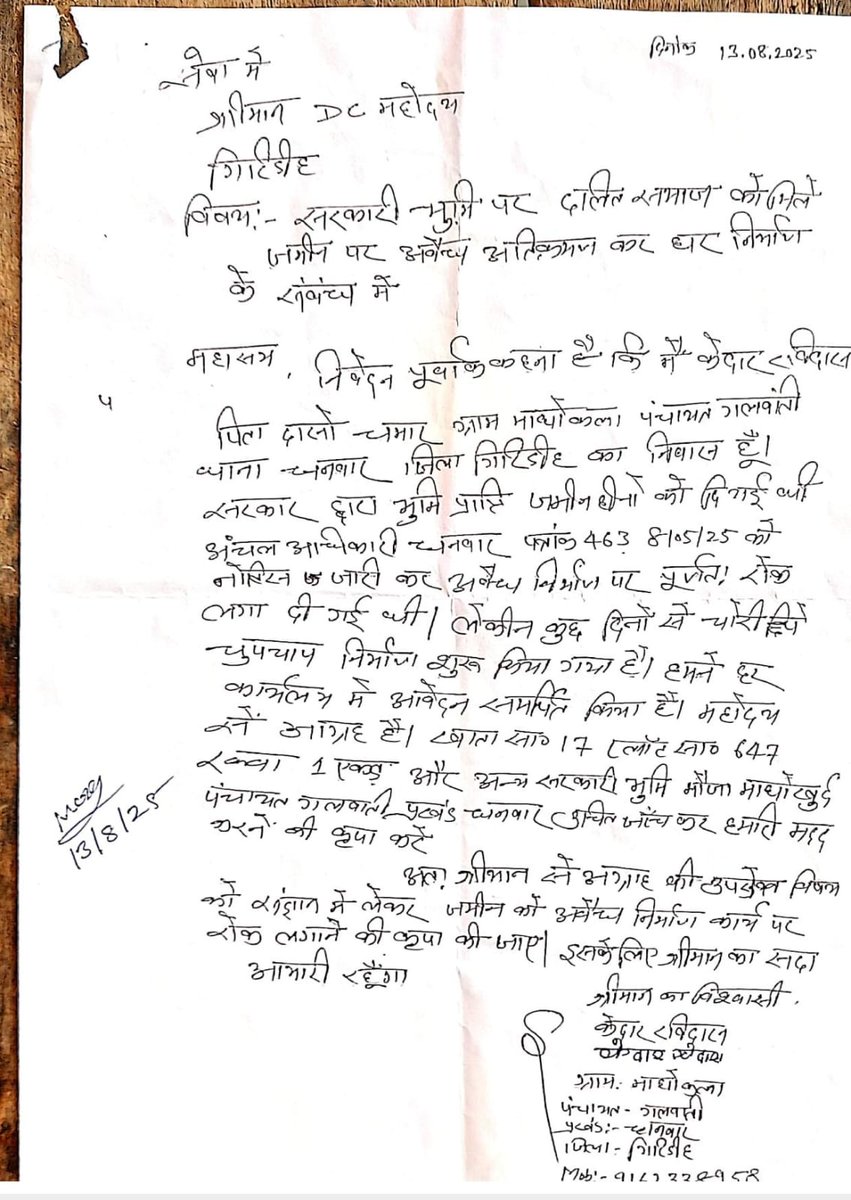 दिनांक 13.08.2025
सेवा में
श्रीमान DC महोदय
गिरिडीह
विषय:- सरकारी भुमि पर दलित समाज को मिले
जमीन पर अवैध्य अतिक्रमण कर घर निर्माण
के संबंध्य में
महाशय, निवेदन पूर्वक कहना है कि मैं केदार रविदास
पिता दासो चमार ग्राम माधोकला पंचायत गलवांती
थाना धनवार जिला गिरिडीह का निवास हूँ।
सरकार द्वारा भुमि प्राप्ति जमीन हीनों को दिगई थी
अंचल अधिकारी धनवार पत्रांक 463 8/05/25 को
नोटिस जारी कर अवैध्य निर्माण पर पूर्णत: रोक
लगा दी गई थी। लेकीन कुछ दिनों से चोरी छिपे
चुपचाप निर्माण शुरू किया गया है। हमने हर
कार्यालय में आवेदन समर्पित किया है। महोदय
से आग्रह है। खाता सा० 17 प्लॉट सा० 647
रकवा 1 एकड़ और अन्य सरकारी भुमि मौजा माधोखुर्द
पंचायत गलवाती प्रखंड धनवार उचित जाँच कर हमारी मदद
करनें की कृपा करें
अत: श्रीमान से आग्रह की उपरोक्त विषय
को संज्ञान में लेकर जमीन को अवैध्य निर्माण कार्य पर
रोक लगाने की कृपा की जाए। इसके लिए श्रीमान का सदा
आभारी रहूँगा
13/8/25
श्रीमान का विश्वासी.
केदार रविदास
ग्राम: माधोकला
पंचायत - गलवाती
प्रखंड:- धनवार
जिला - गिरिडीह
Mob:-